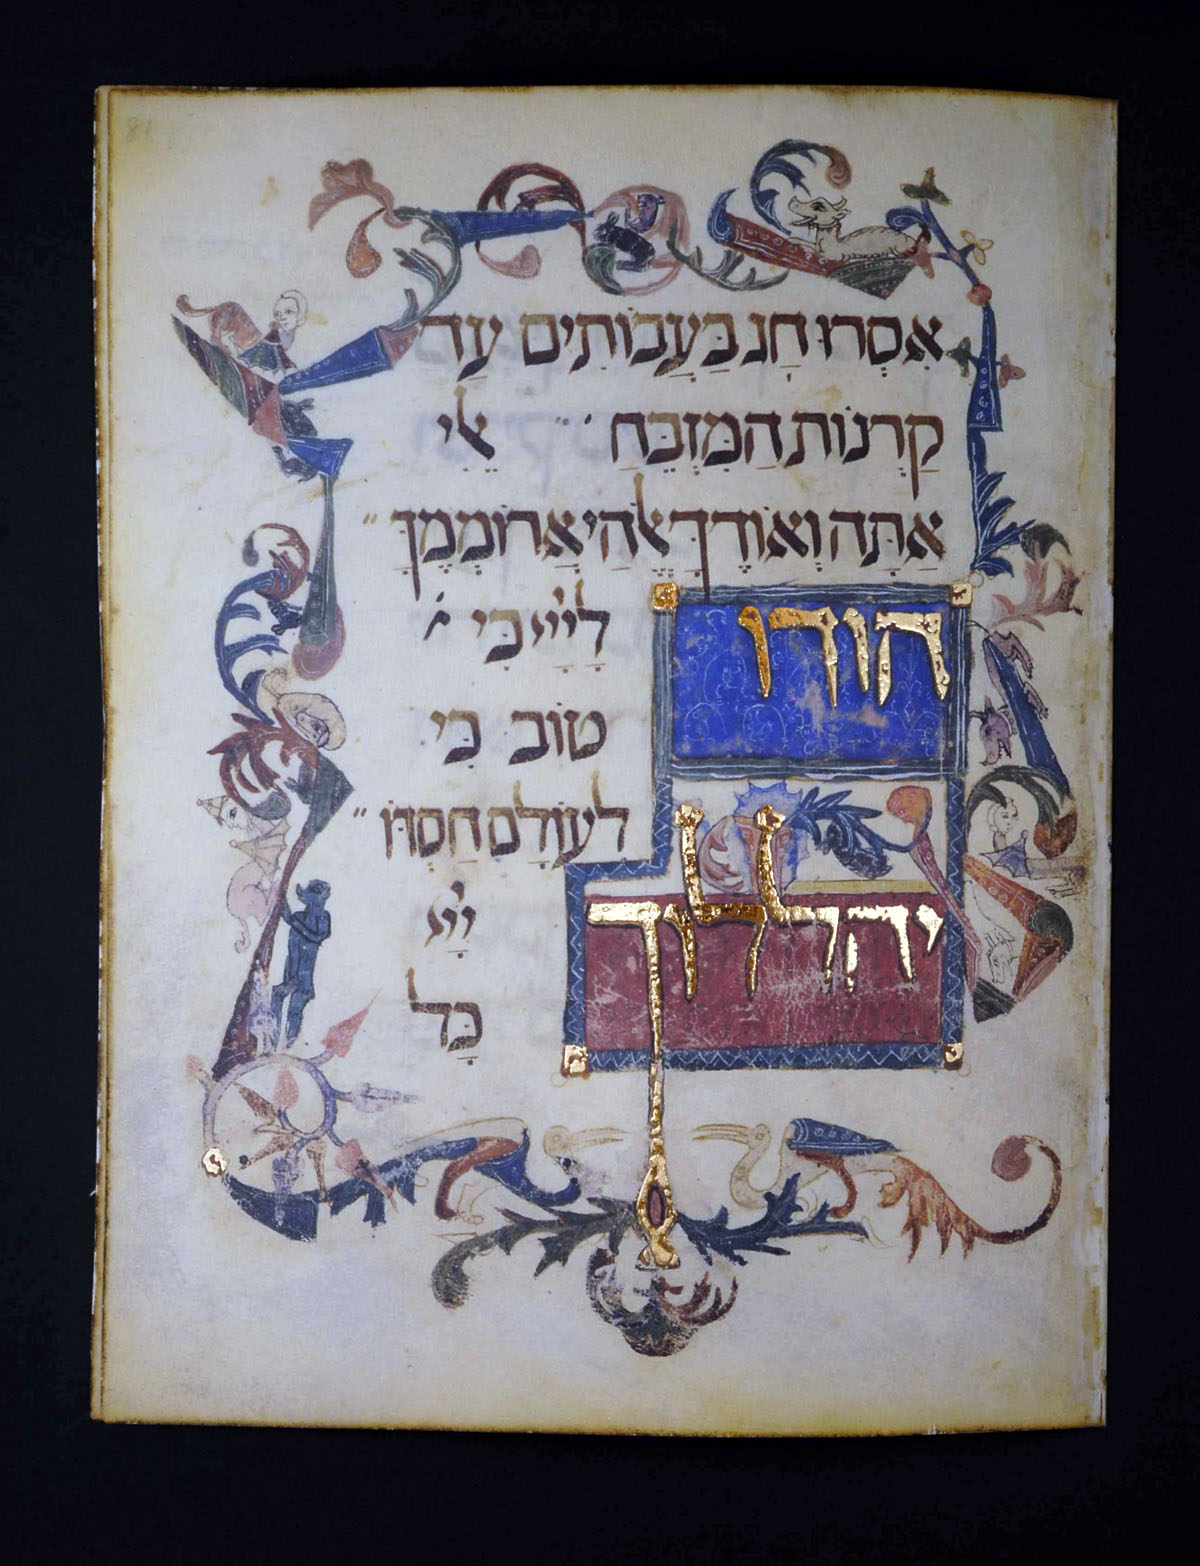 81
אִסְרוּ חַג בַּעֲבוֹתִים עַד
קַרְנוֹת הַמִּזְבֵּחַ אֵלִי
אַתָּה וְאוֹדֶךָּ אֱלֹהַי אֲרוֹמְמֶךָּ
הודו לַייָ כִּי
טוֹב כִּי
לְעוֹלָם חַסְדּוֹ
יהללוך יְיָ
כָּל